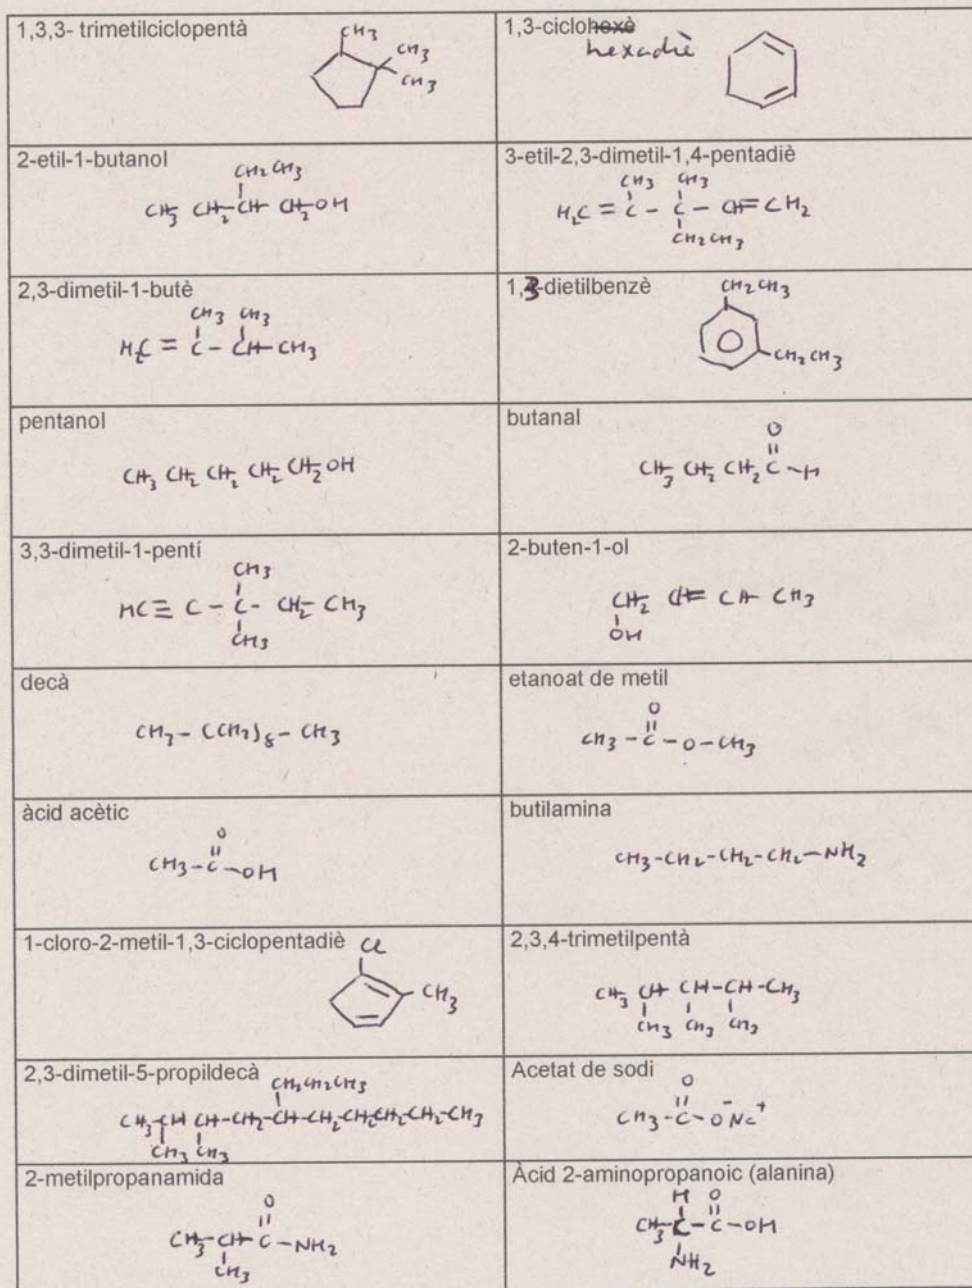 1,3,3- trimetilciclopentà
CH3
CH3
CH3
1,3-ciclohexè
hexadiè
2-etil-1-butanol
CH2CH3
CH3 CH2 CH CH2OH
3-etil-2,3-dimetil-1,4-pentadiè
CH3 CH3
H2C = C - C - CH=CH2
CH2CH3
2,3-dimetil-1-butè
CH3 CH3
H2C = C - CH-CH3
1,3-dietilbenzè
CH2CH3
CH2CH3
pentanol
CH3 CH2 CH2 CH2 CH2OH
butanal
O
CH3 CH2 CH2 C-H
3,3-dimetil-1-pentí
CH3
HC≡ C - C - CH2-CH3
CH3
2-buten-1-ol
CH2 CH= CH CH3
OH
decà
CH3 - (CH2)8 - CH3
etanoat de metil
O
CH3 - C - O - CH3
àcid acètic
O
CH3-C-OH
butilamina
CH3-CH2-CH2-CH2-NH2
1-cloro-2-metil-1,3-ciclopentadiè
Cl
CH3
2,3,4-trimetilpentà
CH3 CH CH-CH-CH3
CH3 CH3 CH3
2,3-dimetil-5-propildecà
CH2CH2CH3
CH3-CH CH-CH2-CH-CH2-CH2CH2-CH2-CH3
CH3 CH3
Acetat de sodi
O
CH3-C-O⁻Na⁺
2-metilpropanamida
O
CH3-CH-C-NH2
CH3
Àcid 2-aminopropanoic (alanina)
H O
CH3-C-C-OH
NH2